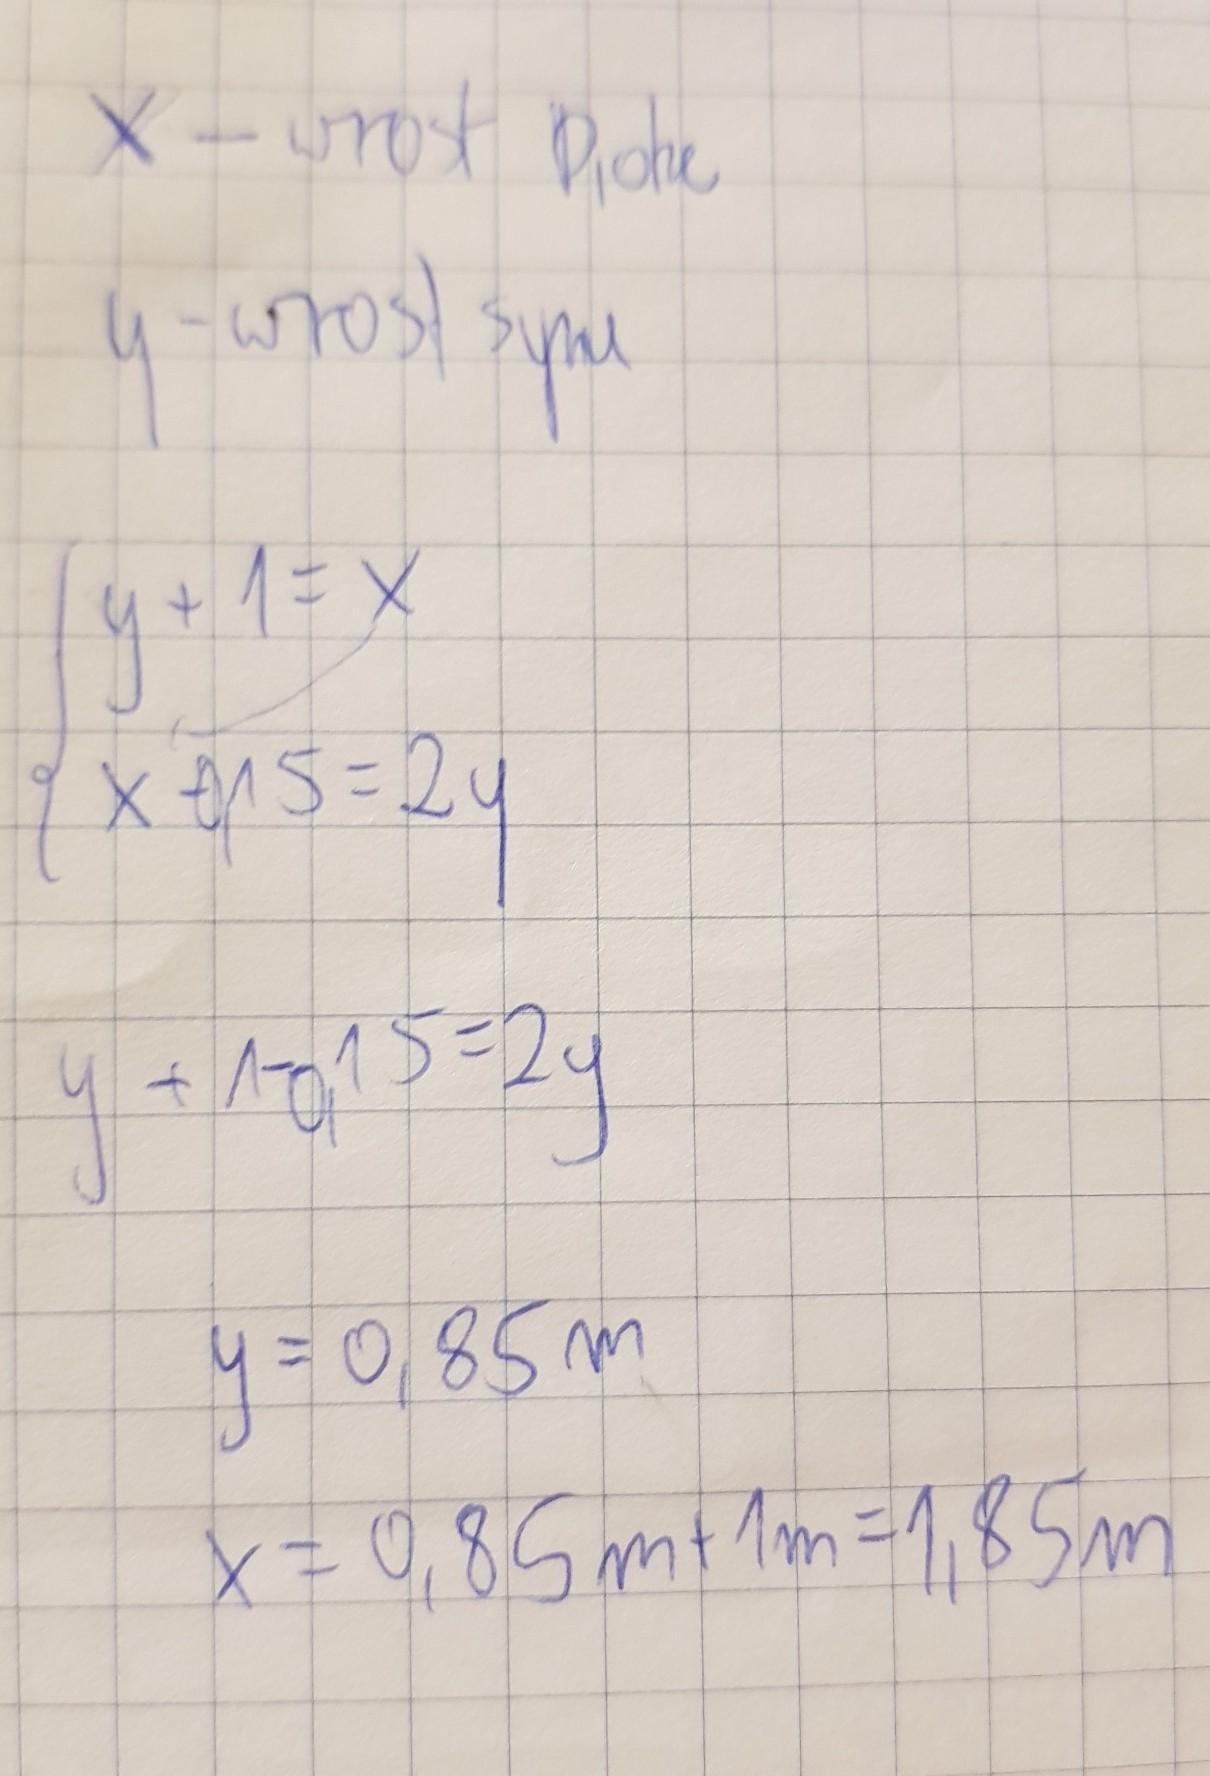 x - wrost Piotra
y - wrost syna
y + 1 = x
x - 0,15 = 2y
y + 1 - 0,15 = 2y
y = 0,85 m
x = 0,85 m + 1 m = 1,85 m